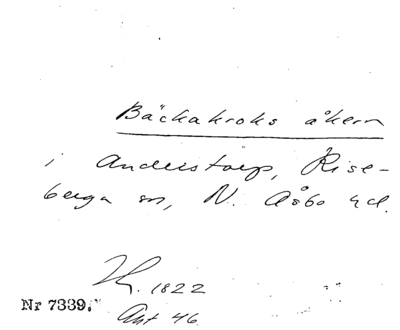 Bäckakroks åkern
i Anderstorp, Rise-
berga sn, N. Åsbo hd.
1822
Nr 7339.
Akt 46